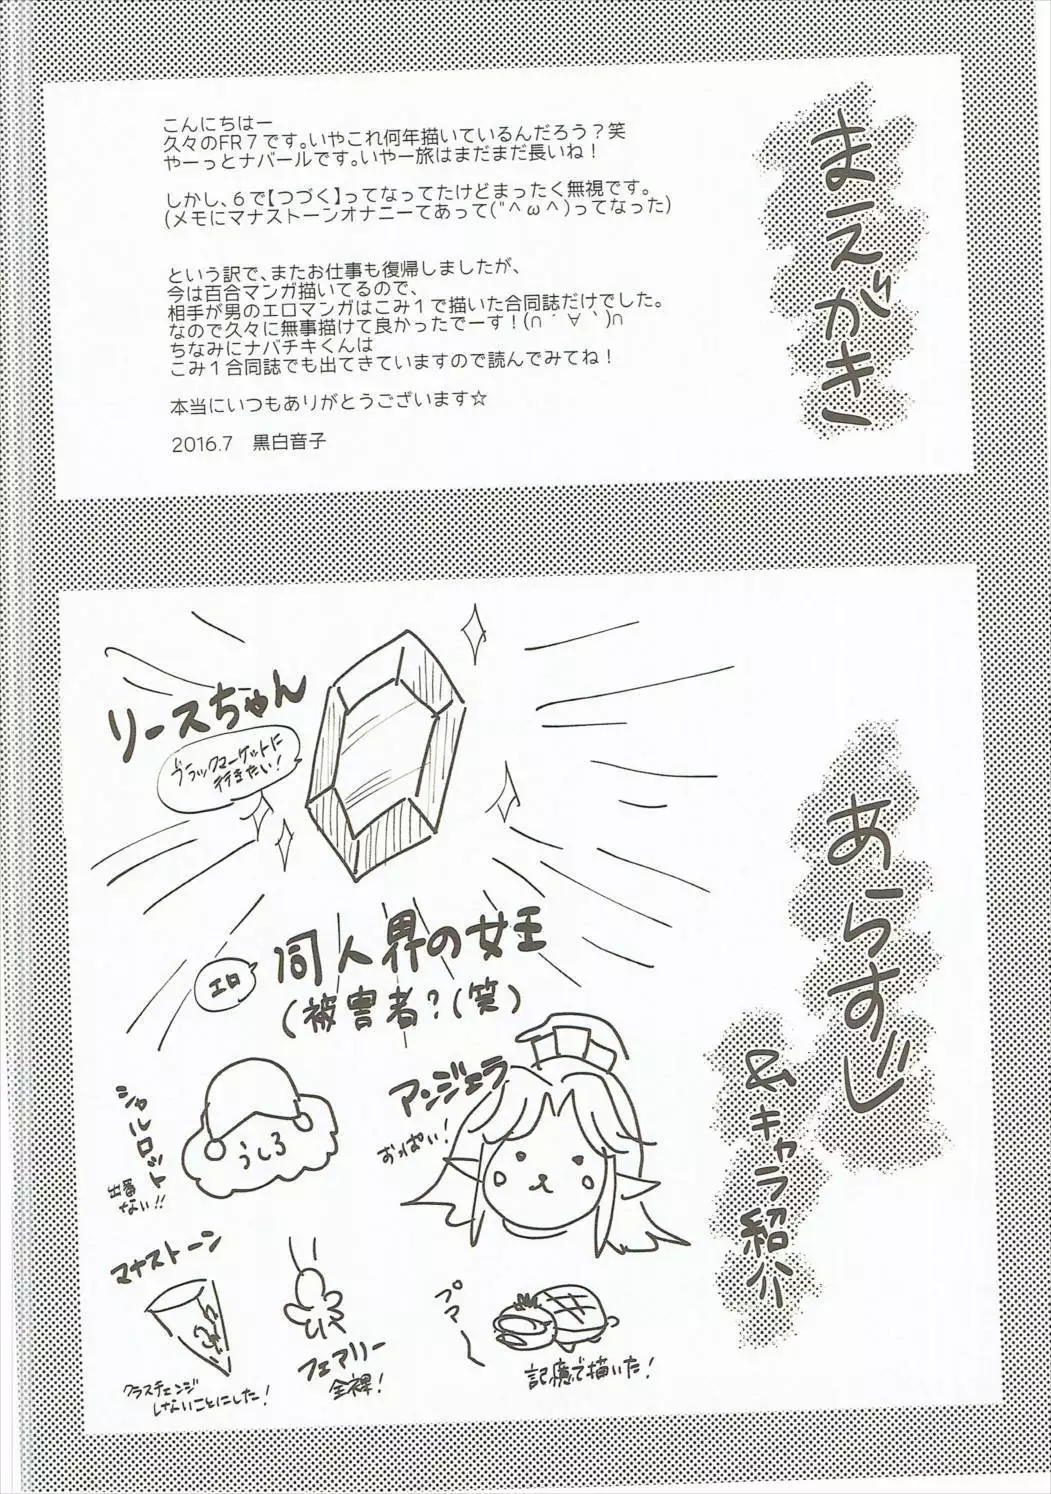 まえがき
こんにちはー
久々のFR７です。いやこれ何年描いているんだろう？笑
やーっとナバールです。いやー旅はまだまだ長いね！
しかし、６で【つづく】ってなってたけどまったく無視です。
(メモにマナストーンオナニーてあって("＾ω＾)ってなった)
という訳で、またお仕事も復帰しましたが、
今は百合マンガ描いてるので、
相手が男のエロマンガはこみ１で描いた合同誌だけでした。
なので久々に無事描けて良かったでーす！(∩´∀｀)∩
ちなみにナバチキくんは
こみ１合同誌でも出てきていますので読んでみてね！
本当にいつもありがとうございます☆
2016.7　黒白音子
あらすじ
&キャラ紹介
リースちゃん
ブラックマーケットに
行きたい！
エロ
同人界の女王
(被害者？(笑)
アンジェラ
おっぱい！
シャルロット
出番
ない!!
うしろ
マナストーン
クラスチェンジ
しないことにした！
フェアリー
全裸！
プマー
記憶で描いた！